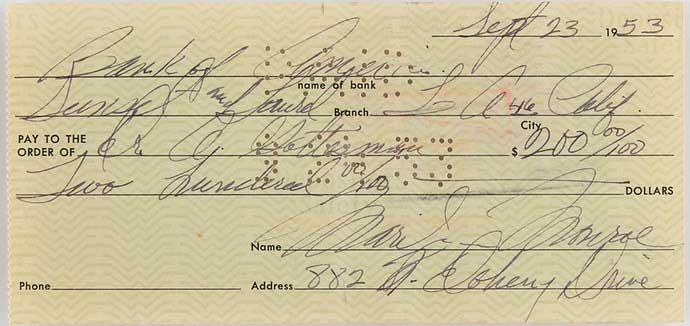 Sept 23 1953
Bank of America
name of bank
Sunset and Laurel Branch L A 46 Calif.
City
PAY TO THE
ORDER OF $ 200 00/100
Two hundred 00/100 DOLLARS
Name Marilyn Monroe
Phone Address 882 N. Doheny Drive